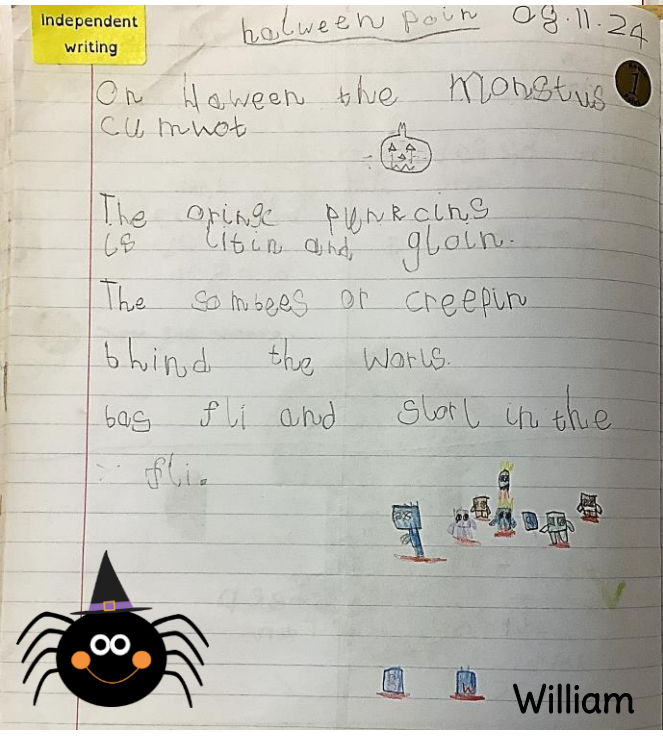 Independent
writing
halween poin 08.11.24
On Haween the Monstus
1
cumnot
The oringe punkcins
is litin and gloin.
The sombees or creepin
bhind the worls.
bas fli and slorl in the
fli.
William